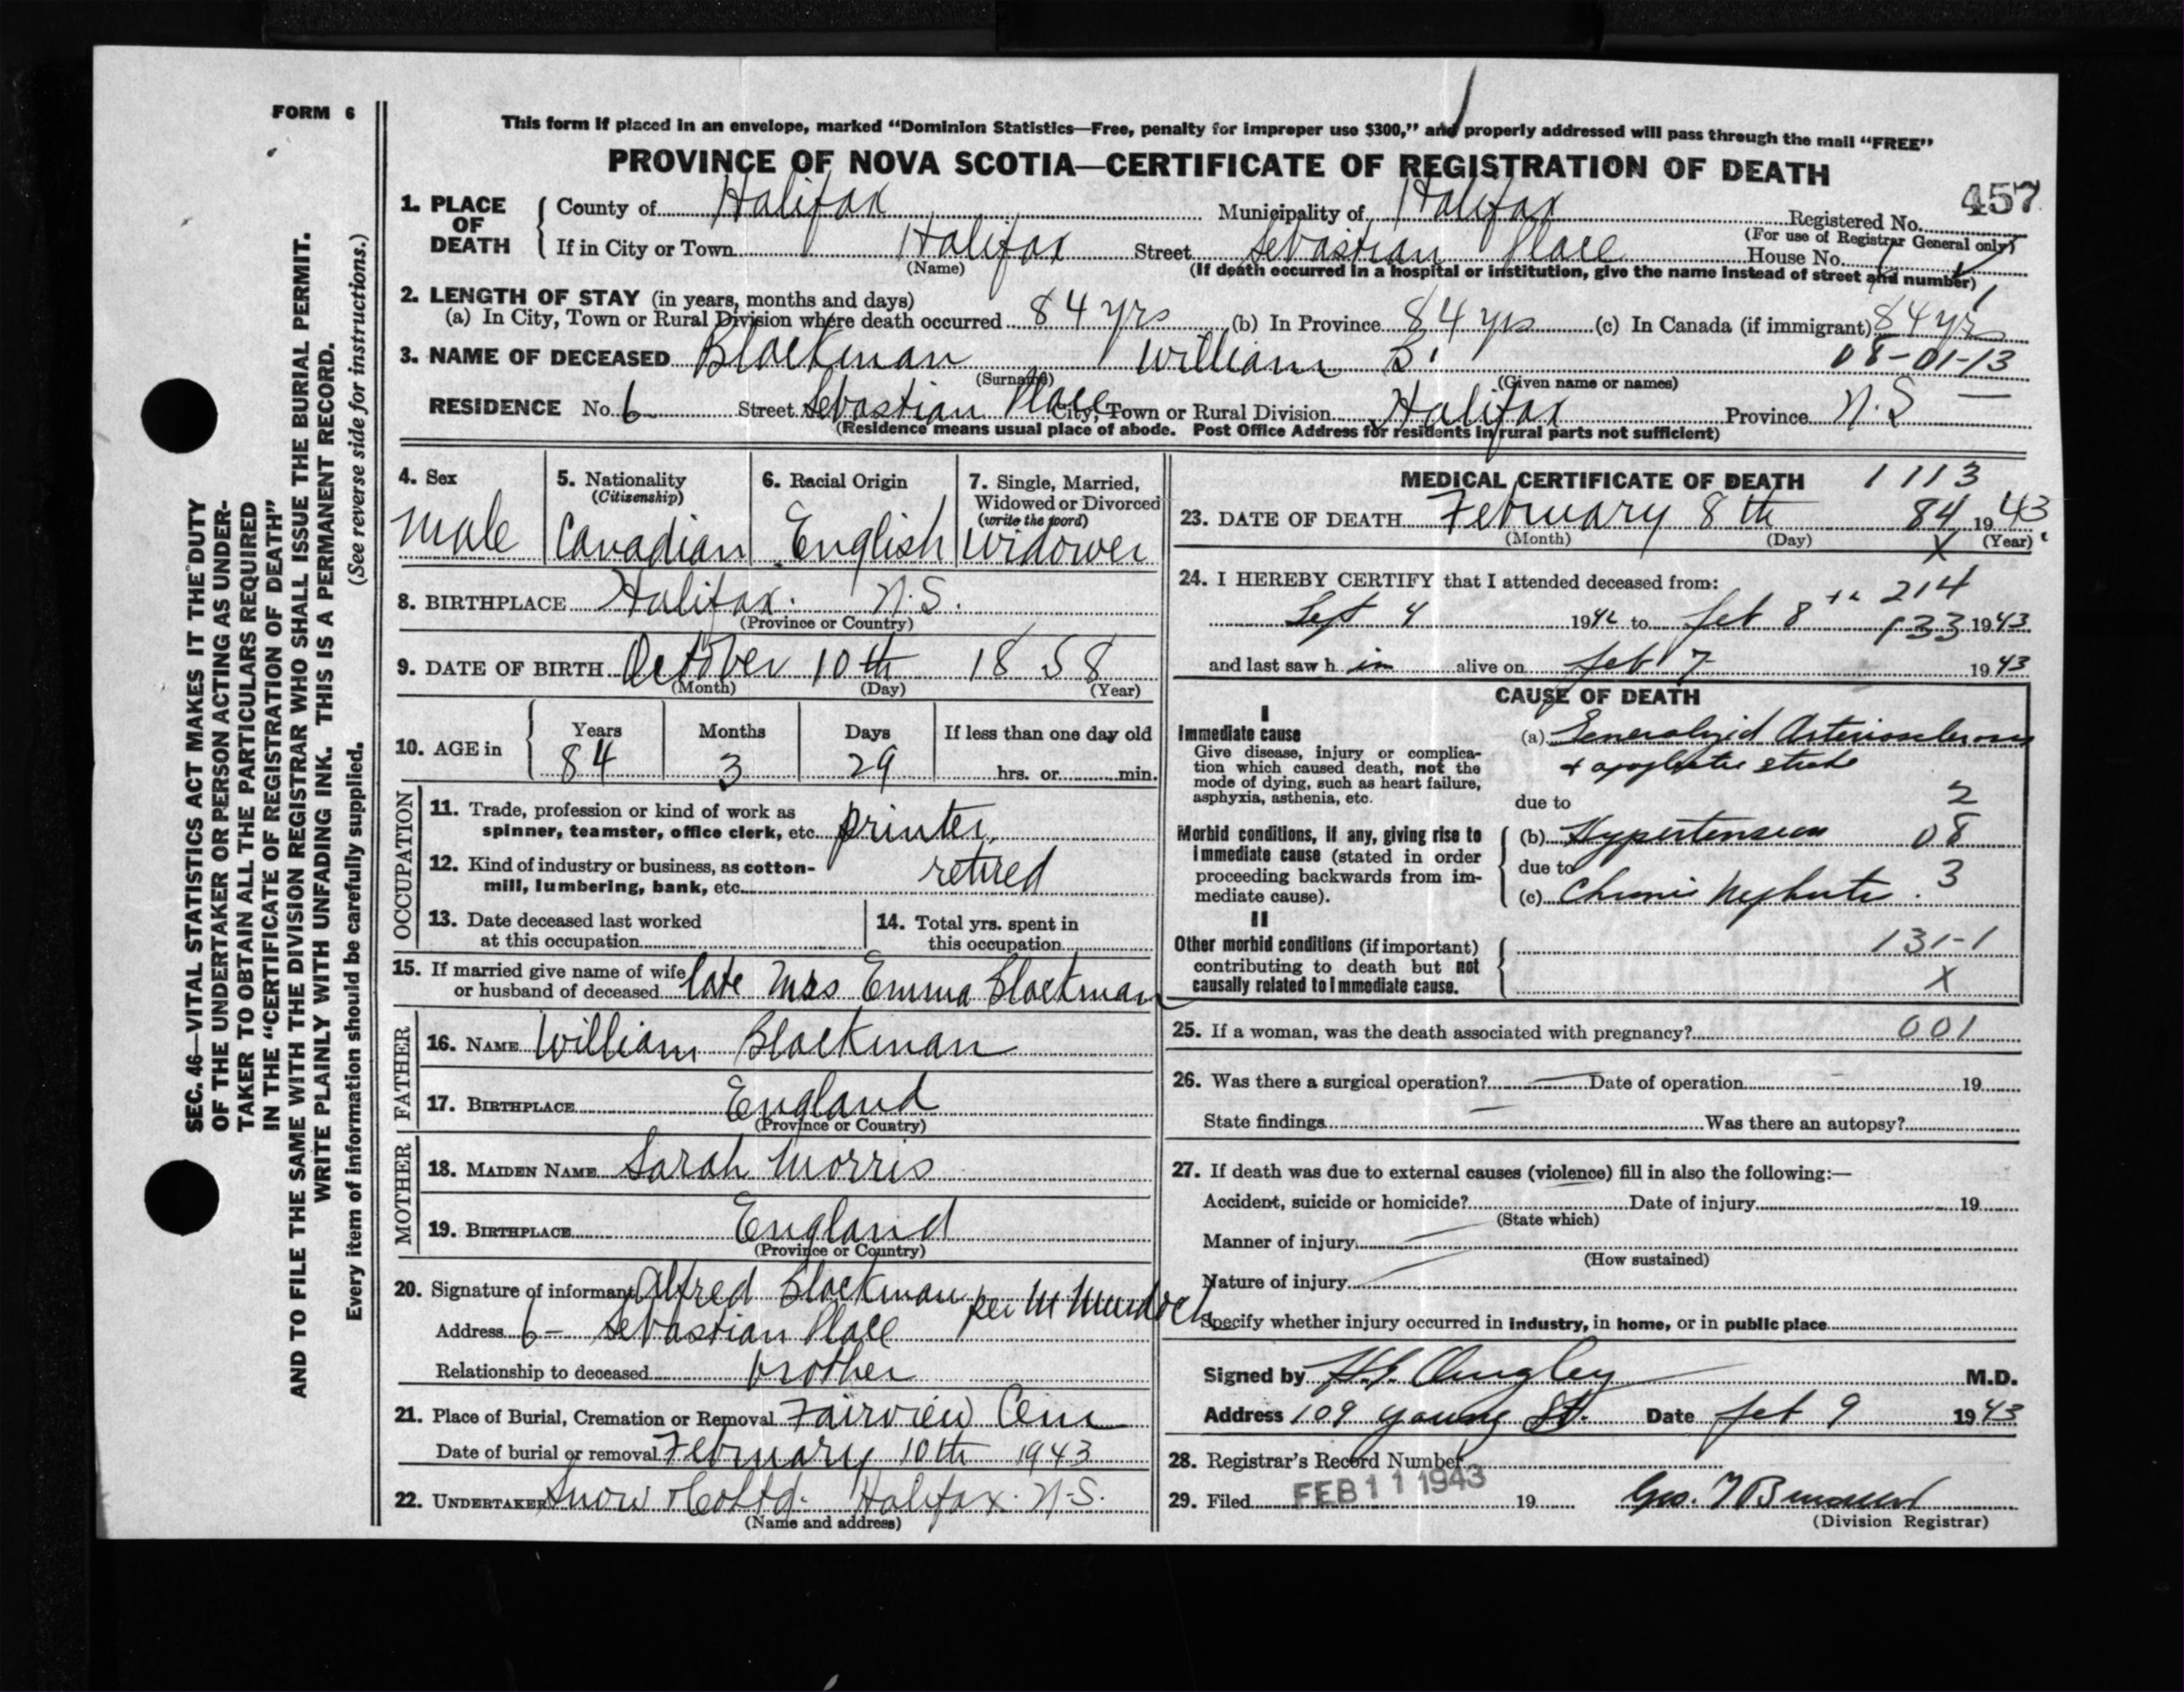 FORM 6
This form if placed in an envelope, marked "Dominion Statistics—Free, penalty for improper use $300," and properly addressed will pass through the mail "FREE"
PROVINCE OF NOVA SCOTIA—CERTIFICATE OF REGISTRATION OF DEATH
457
1. PLACE OF DEATH County of Halifax Municipality of Halifax Registered No.
(For use of Registrar General only)
If in City or Town Halifax Street Sebastian Place House No.
(Name) (If death occurred in a hospital or institution, give the name instead of street and number)
2. LENGTH OF STAY (in years, months and days)
(a) In City, Town or Rural Division where death occurred 84 yrs (b) In Province 84 yrs (c) In Canada (if immigrant) 84 yrs
3. NAME OF DECEASED Blackman William B. 08-01-13
(Surname) (Given name or names)
RESIDENCE No. 6 Street Sebastian Place City, Town or Rural Division Halifax Province N.S
(Residence means usual place of abode. Post Office Address for residents in rural parts not sufficient)
4. Sex 5. Nationality 6. Racial Origin 7. Single, Married,
(Citizenship) Widowed or Divorced
(write the word)
Male Canadian English Widower
8. BIRTHPLACE Halifax. N.S.
(Province or Country)
9. DATE OF BIRTH October 10th 1858
(Month) (Day) (Year)
10. AGE in Years Months Days If less than one day old
84 3 29 hrs. or min.
OCCUPATION
11. Trade, profession or kind of work as
spinner, teamster, office clerk, etc. printer
12. Kind of industry or business, as cotton-
mill, lumbering, bank, etc. retired
13. Date deceased last worked 14. Total yrs. spent in
at this occupation this occupation
15. If married give name of wife
or husband of deceased late Mrs Emma Blackman
FATHER
16. NAME William Blackman
17. BIRTHPLACE England
(Province or Country)
MOTHER
18. MAIDEN NAME Sarah Morris
19. BIRTHPLACE England
(Province or Country)
20. Signature of informant Alfred Blackman per M Murdoch
Address 6 - Sebastian Place
Relationship to deceased brother
21. Place of Burial, Cremation or Removal Fairview Cem
Date of burial or removal February 10th 1943
22. UNDERTAKER Snow & Co Ltd. Halifax. N-S.
(Name and address)
MEDICAL CERTIFICATE OF DEATH 1113
23. DATE OF DEATH February 8th 84 1943
(Month) (Day) X (Year)
24. I HEREBY CERTIFY that I attended deceased from: 214
Sept 4 1942 to Feb 8th 133 1943
and last saw h im alive on Feb 7 1943
CAUSE OF DEATH
I
Immediate cause (a) Generalized Arteriosclerosis
Give disease, injury or complica-
tion which caused death, not the
mode of dying, such as heart failure,
asphyxia, asthenia, etc.
& apoplectic stroke
due to 2
Morbid conditions, if any, giving rise to
immediate cause (stated in order
proceeding backwards from im-
mediate cause).
(b) Hypertension 08
due to 3
(c) Chronic Nephritis.
II
Other morbid conditions (if important) 131-1
contributing to death but not
causally related to immediate cause. X
25. If a woman, was the death associated with pregnancy? 001
26. Was there a surgical operation? — Date of operation 19
State findings — Was there an autopsy?
27. If death was due to external causes (violence) fill in also the following:—
Accident, suicide or homicide? Date of injury 19
(State which)
Manner of injury
(How sustained)
Nature of injury
Specify whether injury occurred in industry, in home, or in public place
Signed by Angley M.D.
Address 109 Young St. Date Feb 9 1943
28. Registrar's Record Number
29. Filed FEB 11 1943 19 Geo.
(Division Registrar)
SEC. 46—VITAL STATISTICS ACT MAKES IT THE DUTY
OF THE UNDERTAKER OR PERSON ACTING AS UNDER-
TAKER TO OBTAIN ALL THE PARTICULARS REQUIRED
IN THE "CERTIFICATE OF REGISTRATION OF DEATH"
AND TO FILE THE SAME WITH THE DIVISION REGISTRAR WHO SHALL ISSUE THE BURIAL PERMIT.
WRITE PLAINLY WITH UNFADING INK. THIS IS A PERMANENT RECORD.
Every item of information should be carefully supplied. (See reverse side for instructions.)